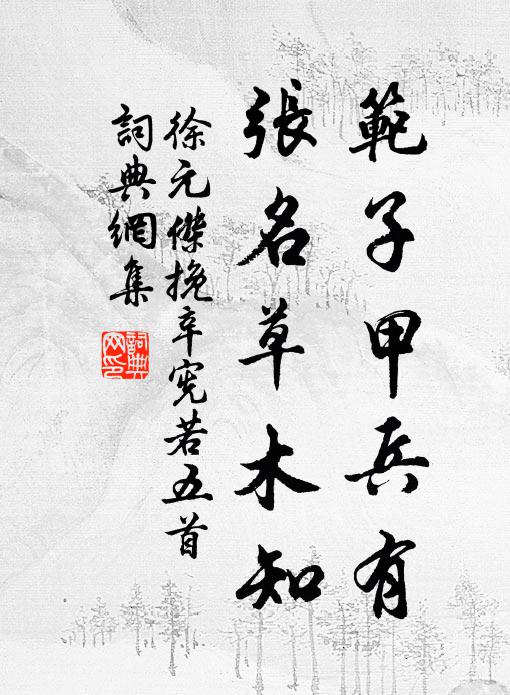 範子甲兵有
張名草木知
徐元傑挽辛宪若五首
詞典網集
詞典
网印